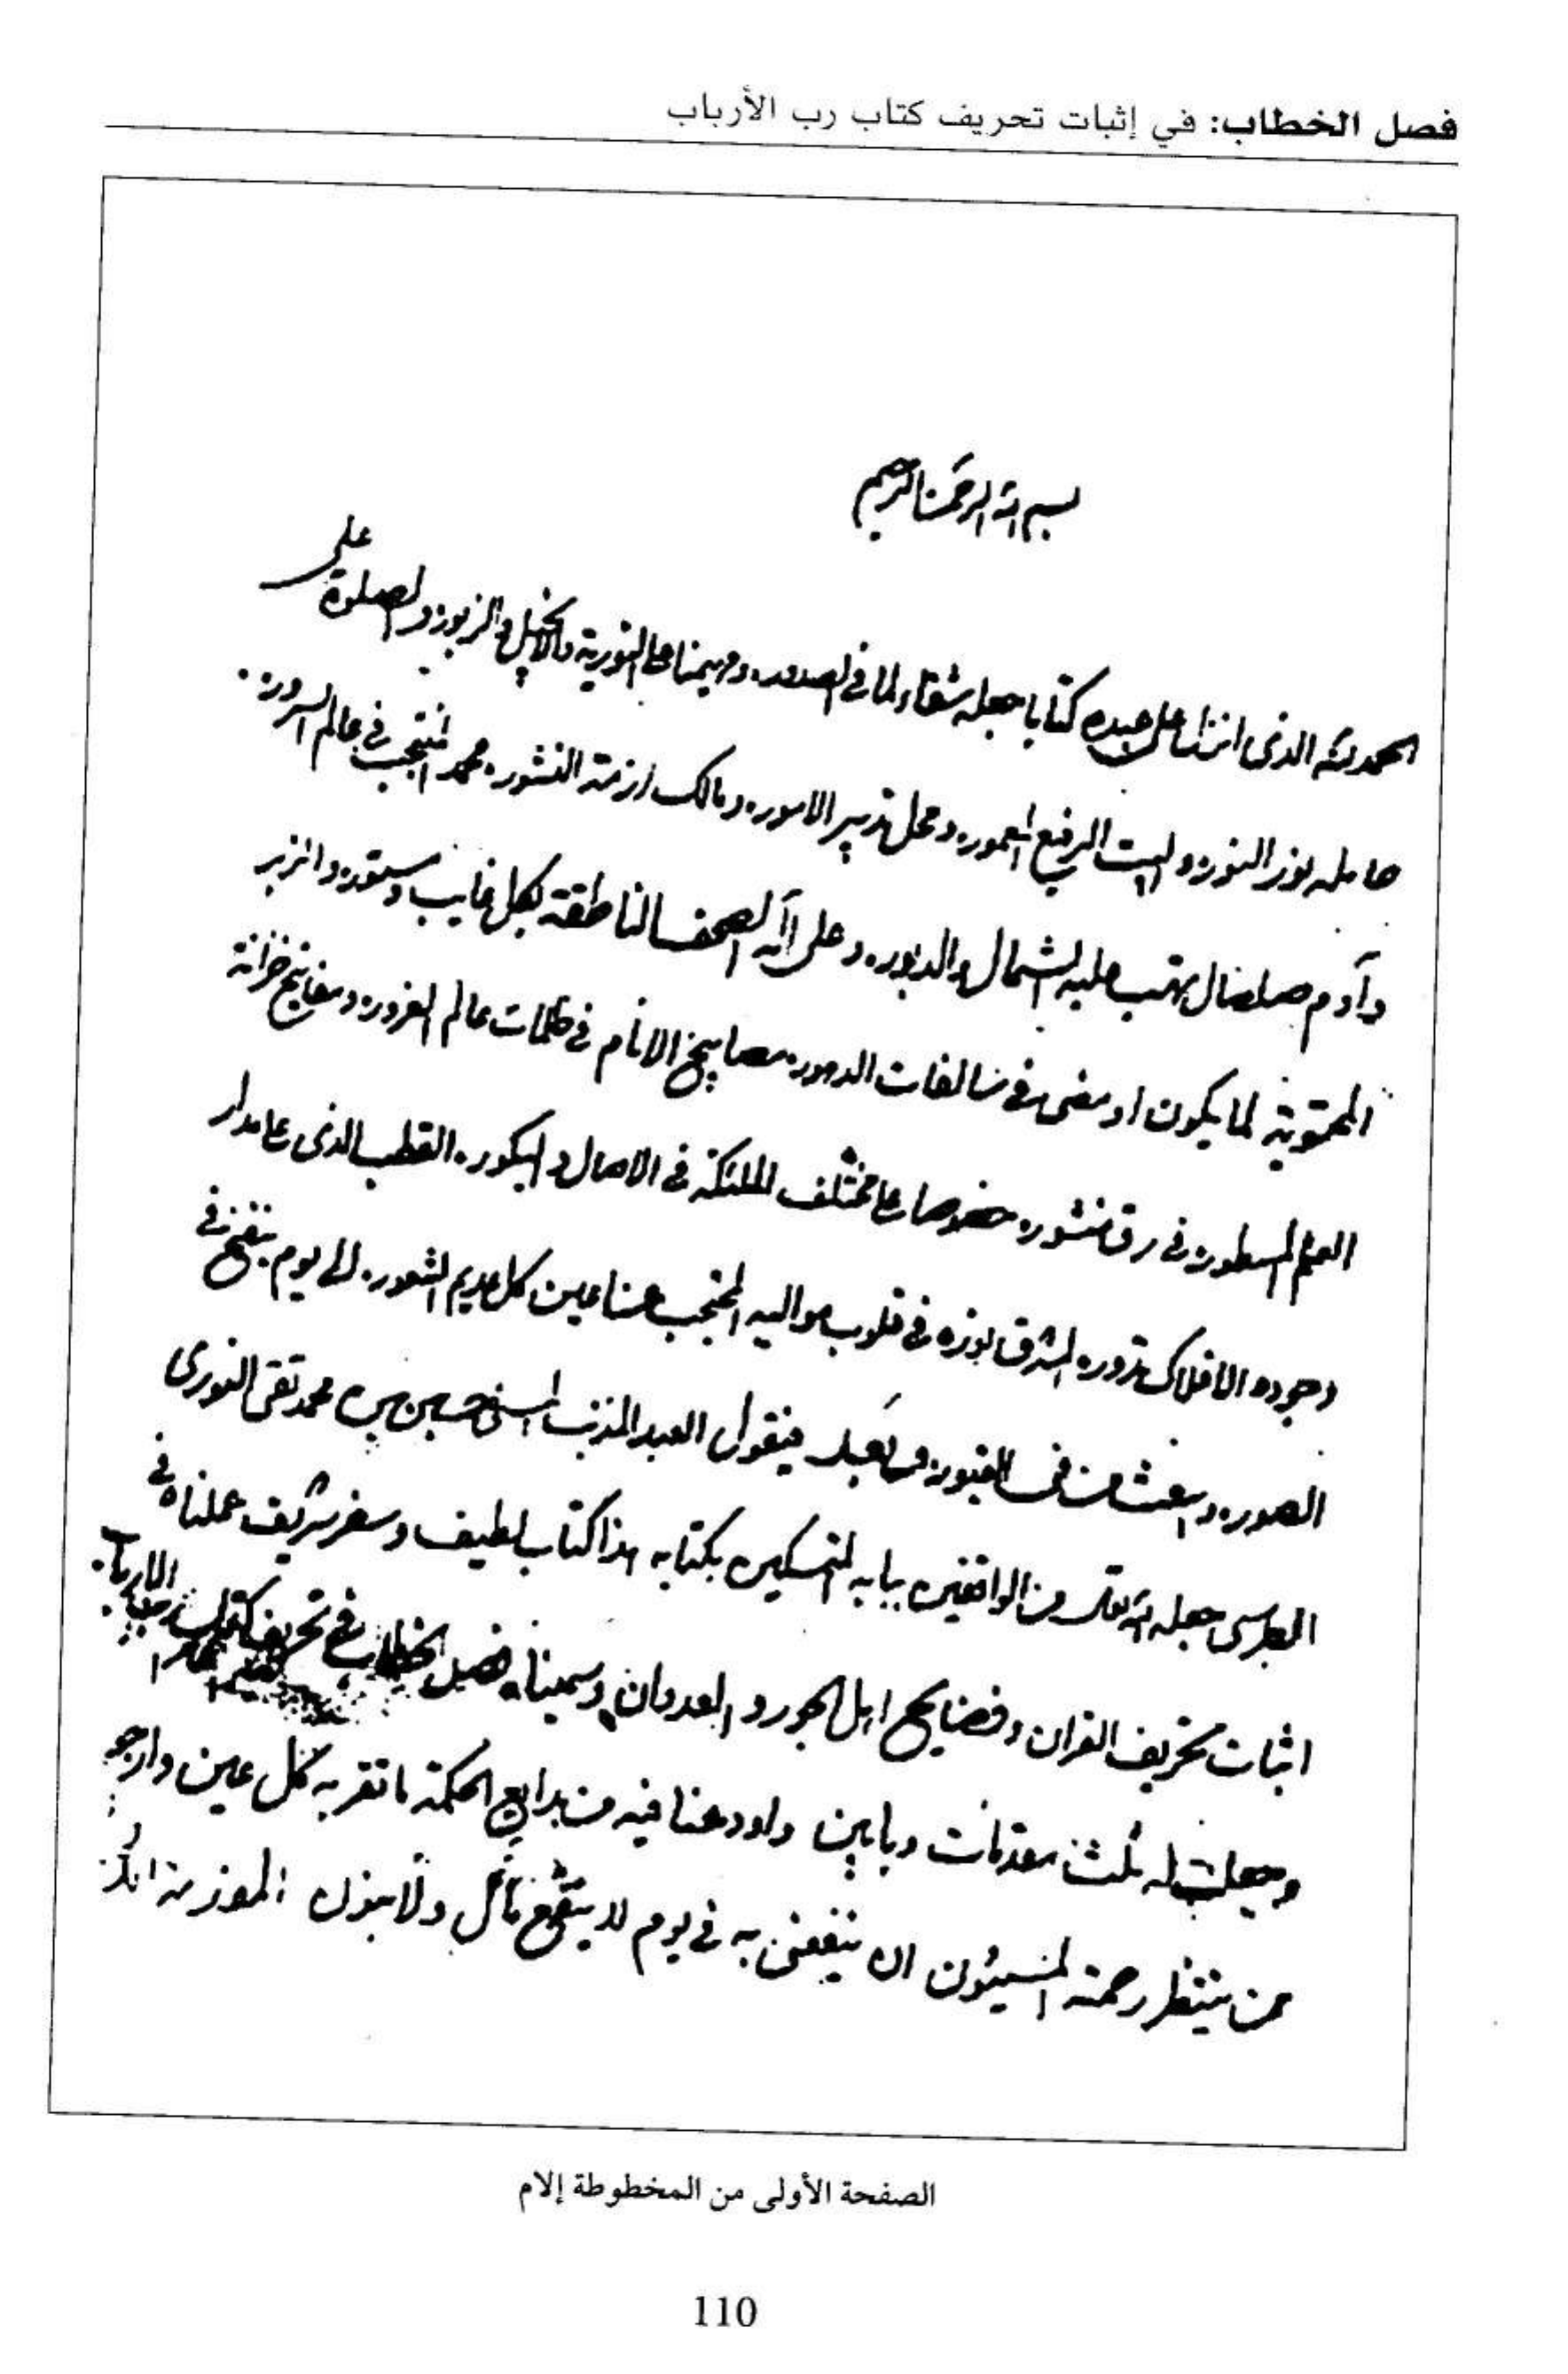 فصل الخطاب: في إثبات تحريف كتاب رب الأرباب
بسم الله الرحمن الرحيم
الحمد لله الذى انزل على عبده كتابا جعله شفاء لما فى الصدور ومهيمنا على التورية والانجيل والزبور والصلوة على
حامله نور النور والبيت الرفيع المعمور ومحل تدبير الامور ومالك ازمة النشور محمد المنتجب فى عالم السرور
وآدم صلصال تهب عليه الشمال والدبور وعلى آله الصحف الناطقة بكل غايب ومستور والزبر
المحتوية لما يكون او مضى فى سالفات الدهور مصابيح الانام فى ظلمات عالم الغرور ومفاتيح خزانة
العلم المسطور فى رق منشور خصوصا على مختلف الملئكة فى الاصال والبكور القطب الذى على مدار
وجوده الافلاك تدور المشرق نوره فى قلوب مواليه المحتجب عنا عين كل عديم الشعور الى يوم ينفخ فى
الصور ويبعث من فى القبور وبعد فيقول العبد المذنب المسئ حسين بن محمد تقى النورى
الطبرسى جعله الله تعالى من الواقفين ببابه المتمسكين بكتابه هذا كتاب لطيف وسفر شريف عملناه فى
اثبات تحريف القران وفضايح اهل الجور والعدوان وسميناه فصل الخطاب فى تحريف كتاب رب الارباب
وجعلت له ثلث مقدمات وبابين واودعنا فيه من بدايع الحكمة ما تقر به كل عين وارجو
ممن ينتظر رحمته المسيئون ان ينفعنى به فى يوم لا ينفع مال ولا بنون
الصفحة الأولى من المخطوطة إلام
110